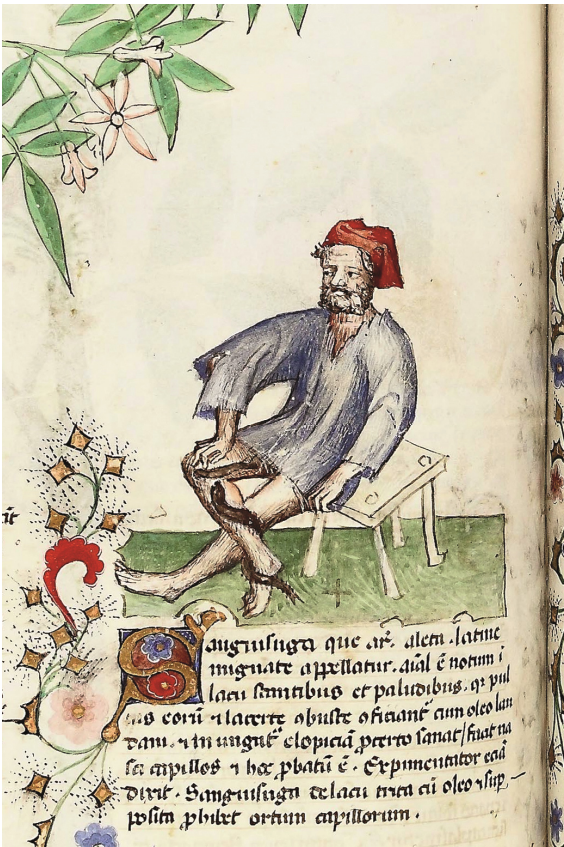 Sanguisuga que ar̃. aleca. latine
mignate appellatur. aīal ē notum ī
lacu stantibus et paludibus. qꝛ pul
uis eorū ⁊ lacerte cbuste oficiant̃ cum oleo lau
dani. ⁊ in ungat̃ elopiciā ꝑcerto sanat / facit na
sci capillos ⁊ hoc ꝓbatū ē. Expimentator eciā
dixit. Sanguisuga de lacu trita cū oleo ⁊ suꝑ
posita ꝓhibet ortum capillorum.